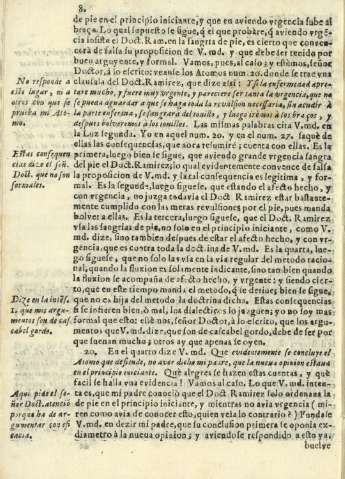 8.
de pie en el principio iniciante, y que en aviendo vrgencia sube al
braço. Lo qual supuesto se sigue, q̃ el que probàre, q̃ aviendo vrgẽ-
cia insiste el Doct. Ram. en la sangria de pie, es cierto que conven-
cerà de falsa su proposicion de V. md. y que debe ser tenido por
buen arguyente, y formal. Vamos, pues, al caso; y estèmos, señor
Doctor, à lo escrito: veanse los Atomos num. 20. donde se trae vna
clausula del Doct. Ramirez, que dize assi: Y si la enfermedad apre-
tare mucho, y fuere muy vrgente, y pareciere ser tanta la urgencia, que no
se pueda aguardar a que se haga toda la revulsion necessaria, sin acudir à
la parte enferma, se sangrarà del tovillo, y luego iremos à los braços, y
despues bolveremos à los tovillos. Las mismas palabras cita V. md. en
la Luz segunda. Yo en aquel num. 20. y en el num. 27. saquè de
ellas las consequencias, que aora resumirè; cuenta con ellas. Es la
primera, luego bien se sigue, que aviendo grande vrgencia sangrò
del pie el Doct. Ramirez; lo qual evidentemente convence de falsa
la proposicion de V. md. y la tal consequencia es legitima, y for-
mal. Es la segunda, luego siguese, que estando el afecto hecho, y
con vrgencia, no juzga todavia el Doct. Ramirez estar bastante-
mente cumplido con las metas revulsiones por el pie, pues manda
bolver a ellas. Es la tercera, luego siguese, que el Doct. Ramirez
vsa las sangrias de pie, no solo en el principio iniciante, como V.
md. dize, sino tambien despues de estar el afecto hecho, y con vr-
gencia, que es contra toda la doct.na de V. md. Es la quarta, lue-
go siguese, que no solo las vsa en la via regular del modo racio-
nal, quando la fluxion es solamente indicante, sino tambien quando
la fluxion se acompaña de afecto hecho, y vrgente: y siendo cier-
to, que en este tiempo manda el metodo, q̃ se derive; bien se sigue,
que no es hija del metodo la doctrina dicha. Estas consequencias
si se infieren bien, ò mal, los dialecticos lo juzguen; yo no soy mas
formal que esto: estèmos, señor Doctor, à lo escrito, que los argu-
mentos que V. md. dize, que son de cascabel gordo, debe de ser por
que suenan mucho; otros ay que apenas se oyen.
20. En el quarto dize V. md. Que evidentemente se concluye el
Atomo que defiende, no aver dicho mi padre, que la nueva opinion estava
en el principio iniciante. Què alegres se hazen estas cuentas, y què
facil se halla vna evidencia! Vamos al caso. Lo que V. md. inten-
ta es, que mi padre conociò que el Doct. Ramirez solo ordenava la
de pie en el principio iniciante, y mientras no avia vrgencia (mi-
ren como avia de conocer esto, quien veìa lo contrario?) Fundase
V. md. en dezir mi padre, que su conclusion primera se oponia ex-
diametro à la nueva opinion; y aviendose respondido a esto ya,
buelve
No responde à
este lugar, ni a
otros dos que se
prueba mi Ato-
mo.
Estas consequen-
cias dize el señ.
Doct. que no son
formales.
Dize en la intro-
2. que mis argu-
mentos son de cas-
cabel gordo.
Aqui pide el se-
ñor Doct. atenciõ
porque ha de ar-
gumentar con efi
cacia.